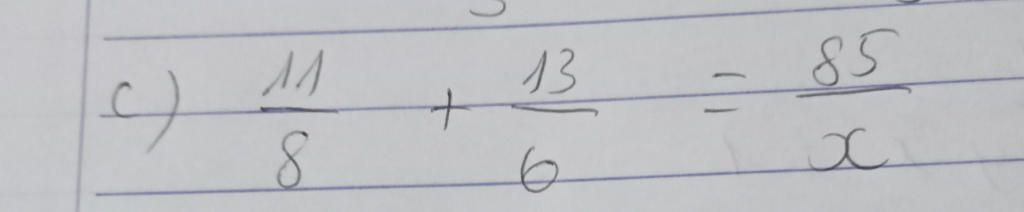 c) 11/8 + 13/6 = 85/x